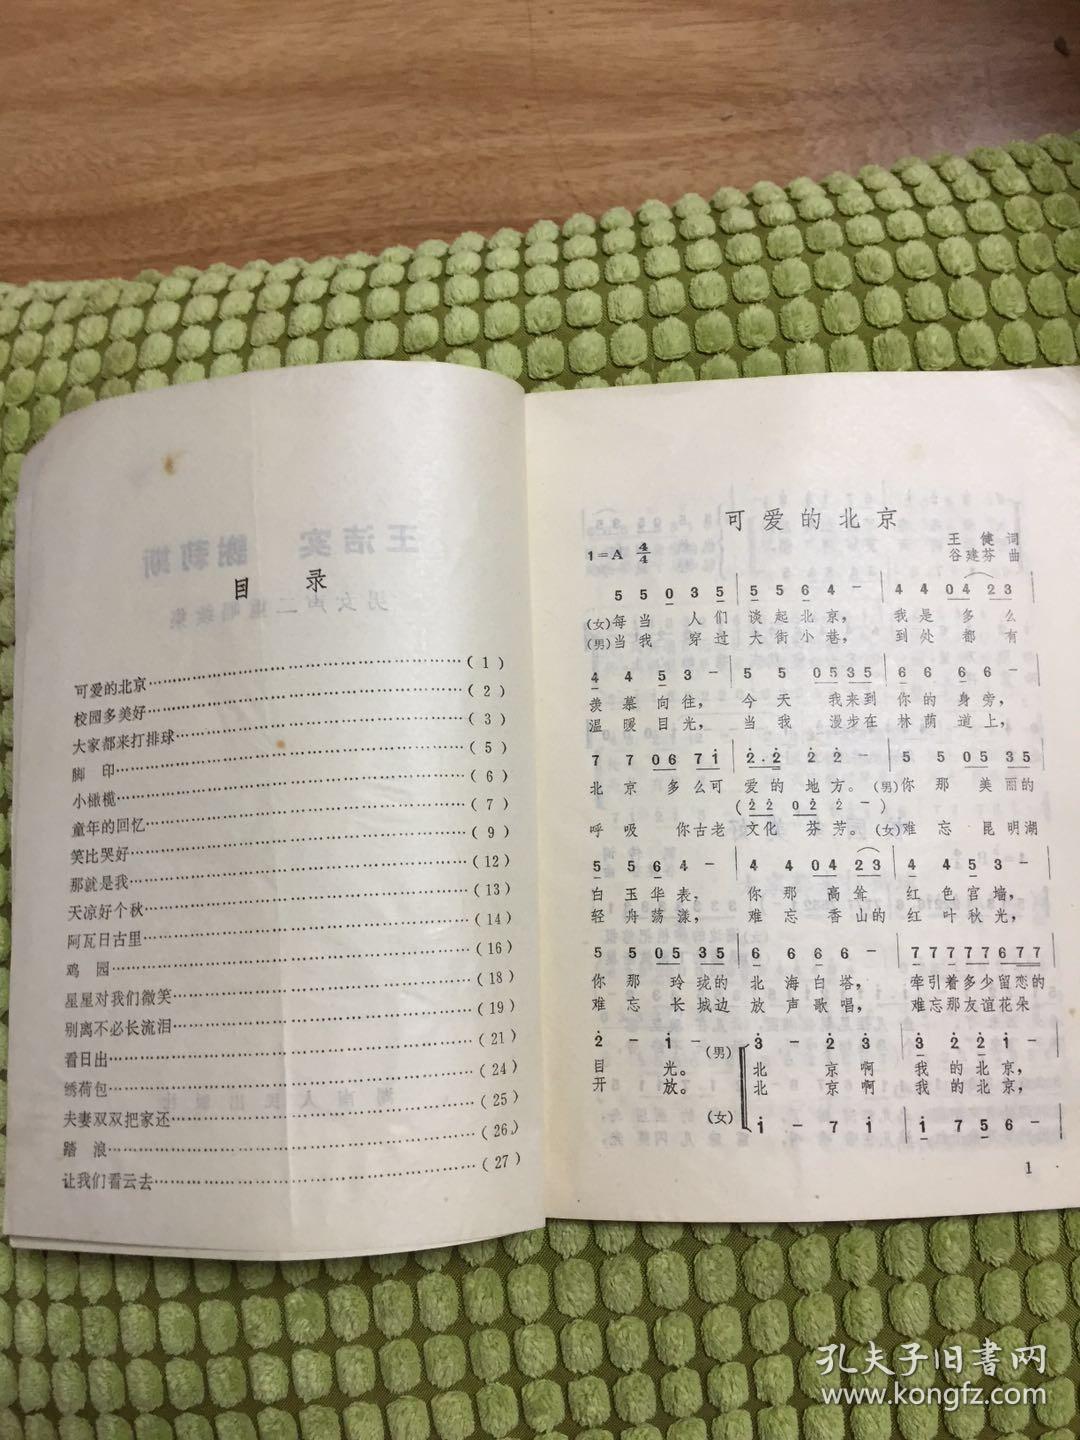 目 录
可爱的北京……(1)
校园多美好……(2)
大家都来打排球……(3)
脚 印……(5)
小橄榄……(6)
童年的回忆……(7)
笑比哭好……(9)
那就是我……(12)
天凉好个秋……(13)
阿瓦日古里……(14)
鸡 园……(16)
星星对我们微笑……(18)
别离不必长流泪……(19)
看日出……(21)
绣荷包……(24)
夫妻双双把家还……(25)
踏 浪……(26)
让我们看云去……(27)
可爱的北京
王 健 词
1=A 4/4
谷建芬 曲
5 5 0 3 5 | 5 5 6 4 - | 4 4 0 4 2 3 |
(女)每当 人们 谈起北京, 我是 多么
(男)当我 穿过 大街小巷, 到处 都有
4 4 5 3 - | 5 5 0 5 3 5 | 6 6 6 6 - |
羡慕向往, 今天 我来到 你的身旁,
温暖目光, 当我 漫步在 林荫道上,
7 7 0 6 7 1 | 2·2 2 2 - | 5 5 0 5 3 5 |
北京 多么可 爱的地方。(男)你那 美丽的
(2 2 0 2 2 -)
呼吸 你古老 文化 芬芳。(女)难忘 昆明湖
5 5 6 4 - | 4 4 0 4 2 3 | 4 4 5 3 - |
白玉华表, 你那 高耸 红色宫墙,
轻舟荡漾, 难忘 香山的 红叶秋光,
5 5 0 5 3 5 | 6 6 6 6 - | 7 7 7 7 7 6 7 7 |
你那 玲珑的 北海白塔, 牵引着多少留恋的
难忘 长城边 放声歌唱, 难忘那友谊花朵
2 - 1 - | (男) 3 - 2 3 | 3 2 2 1 - |
目 光。 北 京啊 我的北京,
开 放。 北 京啊 我的北京,
(女) 1 - 7 1 | 1 7 5 6 - |
1
孔夫子旧書网
www.kongfz.com